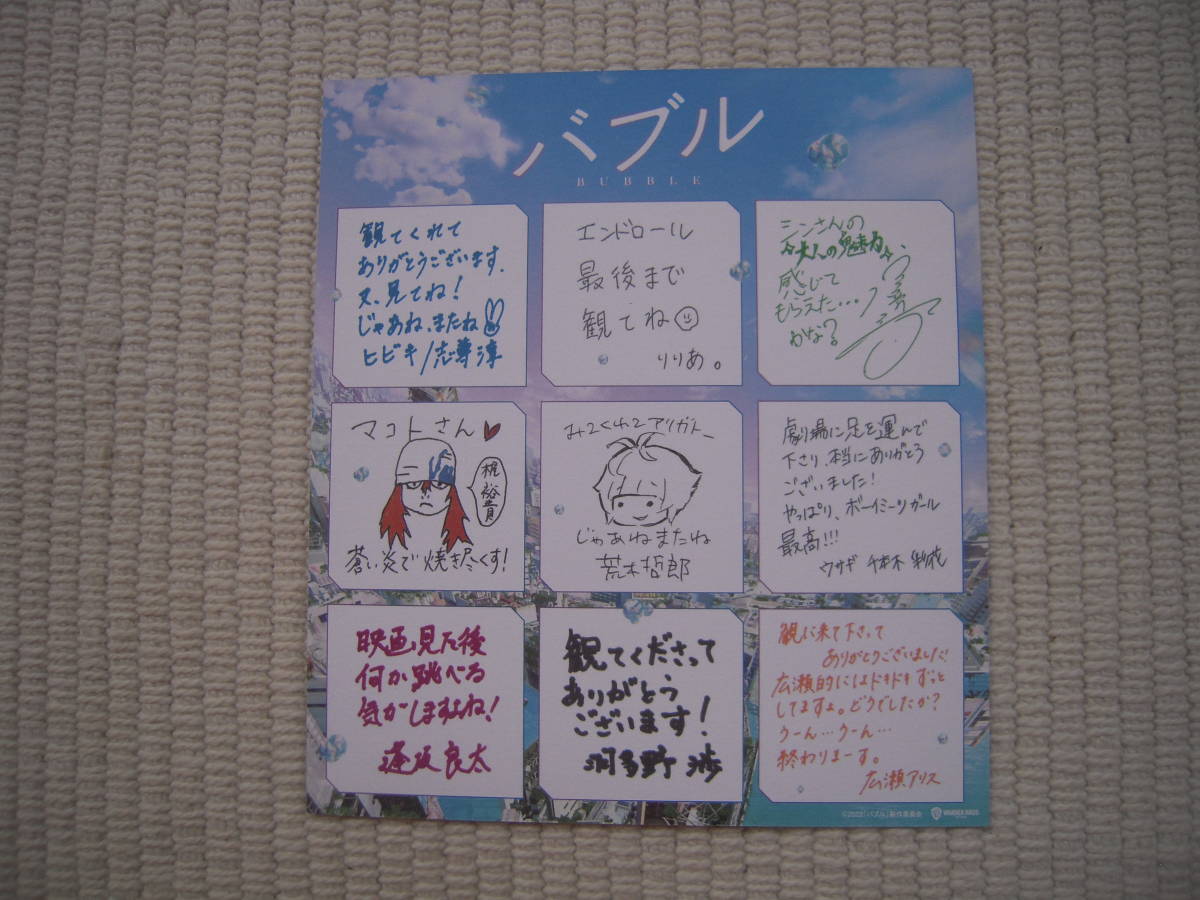 バブル
BUBBLE
観てくれて
ありがとうございます.
又、見てね!
じゃあね、またね
ヒビキ/志尊淳
エンドロール
最後まで
観てね
りりあ。
シンさんの
大人の魅力
感じて
もらえた…
かな?
マコトさん
梶裕貴
蒼い炎で焼き尽くす!
みてくれてアリガトー
じゃあねまたね
荒木哲郎
劇場に足を運んで
下さり、本当にありがとう
ございました!
やっぱり、ボーイミーツガール
最高!!!
ウサギ 千本木 彩花
映画見た後
何か跳べる
気がしますよね!
逢坂良太
観てくださって
ありがとう
ございます!
河多野 渉
観に来て下さって
ありがとうございました!
広瀬的にはドキドキずっと
してますよ。どうでしたか?
うーん…うーん…
終わりまーす。
広瀬アリス
©2022「バブル」製作委員会
WARNER BROS.